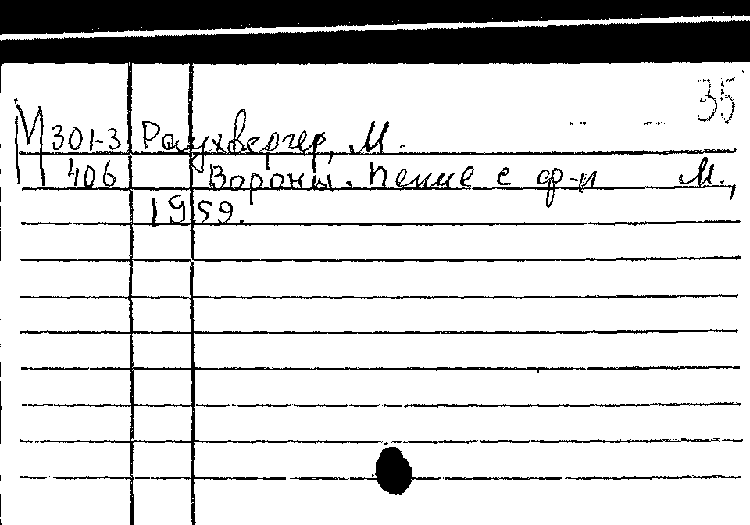 35
М301-3 Раухвергер, М.
406 Вороны. Пение с ф-п М.,
1959.